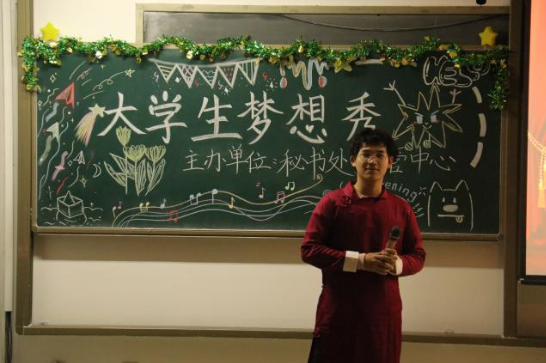 大学生梦想秀
主办单位:秘书处 中心